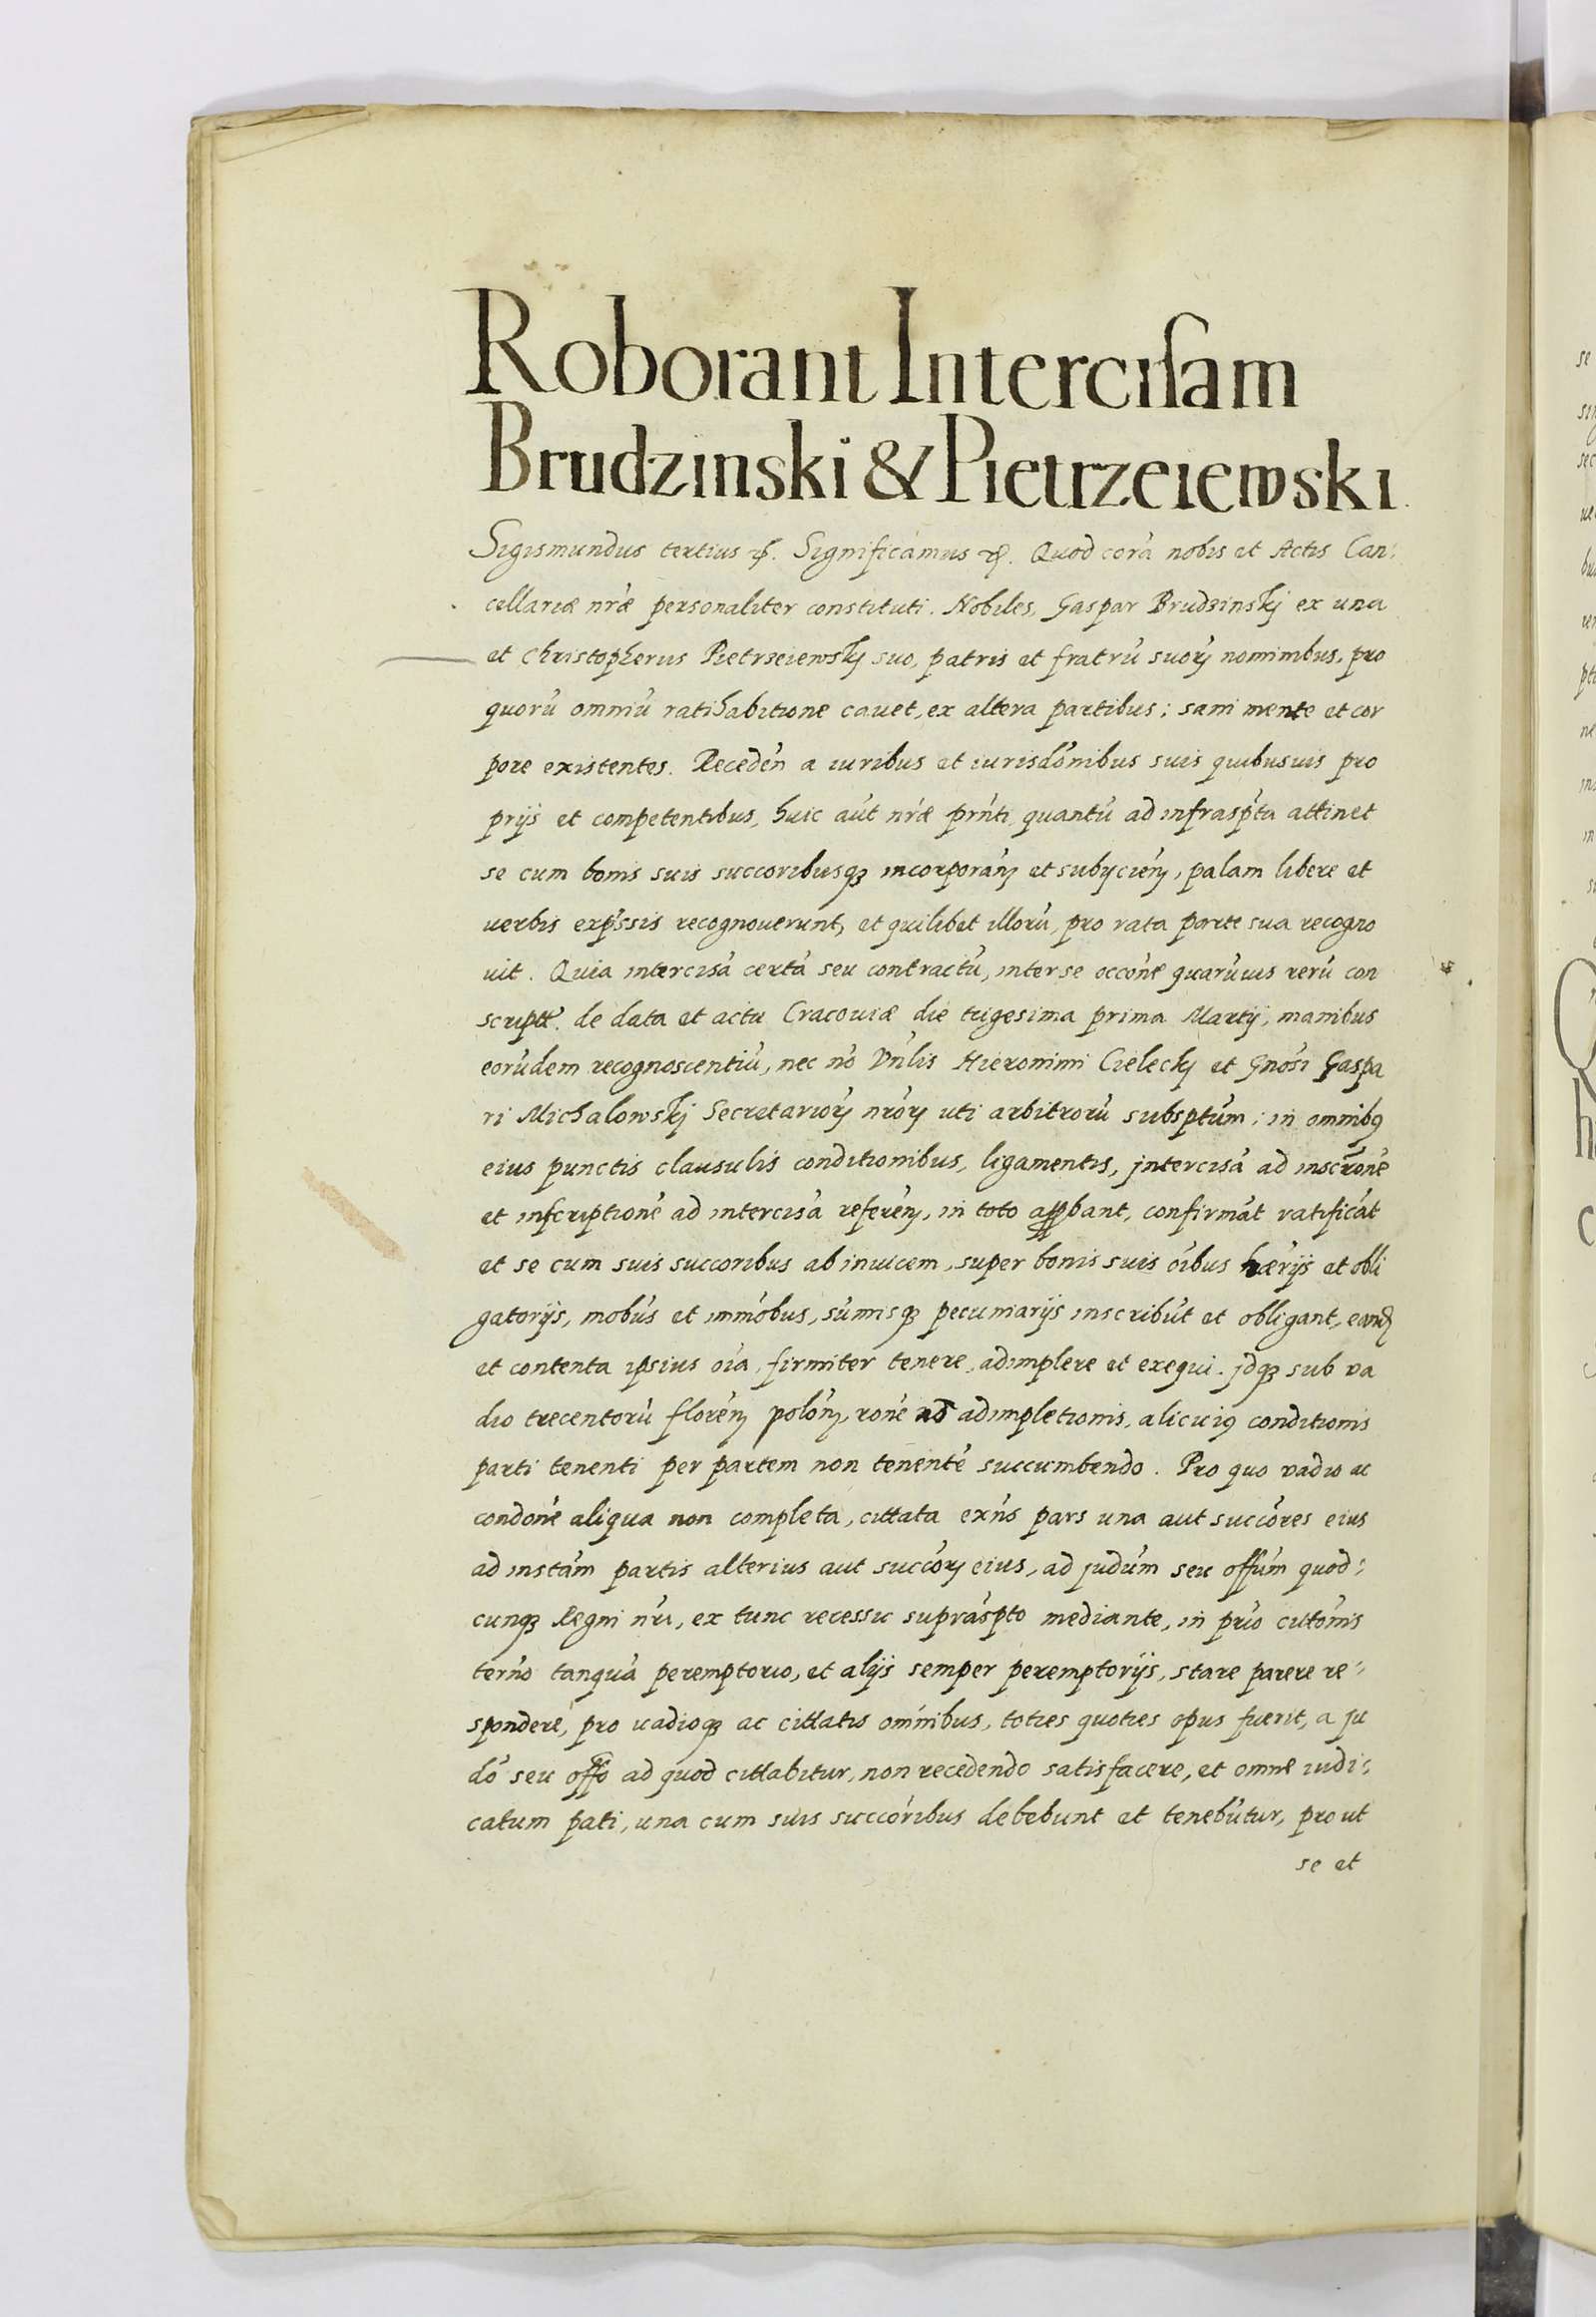 Roborant Intercisam
Brudzinski & Pietrzeiewski.
Sigismundus tertius etc. Significamus etc. Quod corā nobis et Actis Can:
cellariæ nræ personaliter constituti. Nobiles, Gaspar Brudzinskj ex una
et Christopherus Pietrzeiewskj suo, patris et fratrū suorꝝ nominibus, pro
quorū omniū ratihabitione cauet, ex altera partibus; sani mente et cor
pore existentes. Recedēn a iuribus et iurisdōnibus suis quibusuis pro
prijs et competentibus, huic aūt nræ prn̄ti quantū ad infrasp̄ta attinet
se cum bonis suis succoribusqꝫ incorporān et subijciēn, palam libere et
uerbis exp̄ssis recognouerunt, et quilibet illorū, pro rata parte sua recogno
uit. Quia intercisā certā seu contractū, inter se occōne quarūuis rerū con
script. de data et actu Cracouiæ die trigesima prima Martij, manibus
eorūdem recognoscentiū, nec nō Vn̄lis Hieronimi Cieleckj et Gnōsi Gaspa
ri Michalowskj Secretariorꝝ nrōrꝝ uti arbitrorū subsptūm; in omnibꝰ
eius punctis clausulis conditionibus, ligamentis, jntercisā ad inscrōnē
et inscriptionē ad intercisā referēn, in toto approbant, confirmāt ratificāt
et se cum suis succoribus ab inuicem, super bonis suis oībus hærijs et obli
gatorijs, mobūs et immōbus, sūmisqꝫ pecuniarijs inscribūt et obligant, eand
et contenta ipsius oīa, firmiter tenere, adimplere et exequi. jdqꝫ sub va
dio trecentorū florēn polōn, rōne nō adimpletionis, alicuiꝰ conditionis
parti tenenti per partem non tenentē succumbendo. Pro quo vadio ac
condōne aliqua non completa, cittata exn̄s pars una aut succōres eius
ad instām partis alterius aut succōrꝝ eius, ad judūm seu offūm quod:
cunqꝫ Regni nrī, ex tunc recessu suprāspto mediante, in prīo cittōnis
tern̄o tanquā peremptorio, et alijs semper peremptorijs, stare parere re:
spondere, pro uadioqꝫ ac cittatis omnibus, toties quoties opus fuerit, a ju
dō seu offō ad quod cittabitur, non recedendo satisfacere, et omne iudi:
catum pati, una cum suis succōribus debebunt et tenebūtur, prout
se et